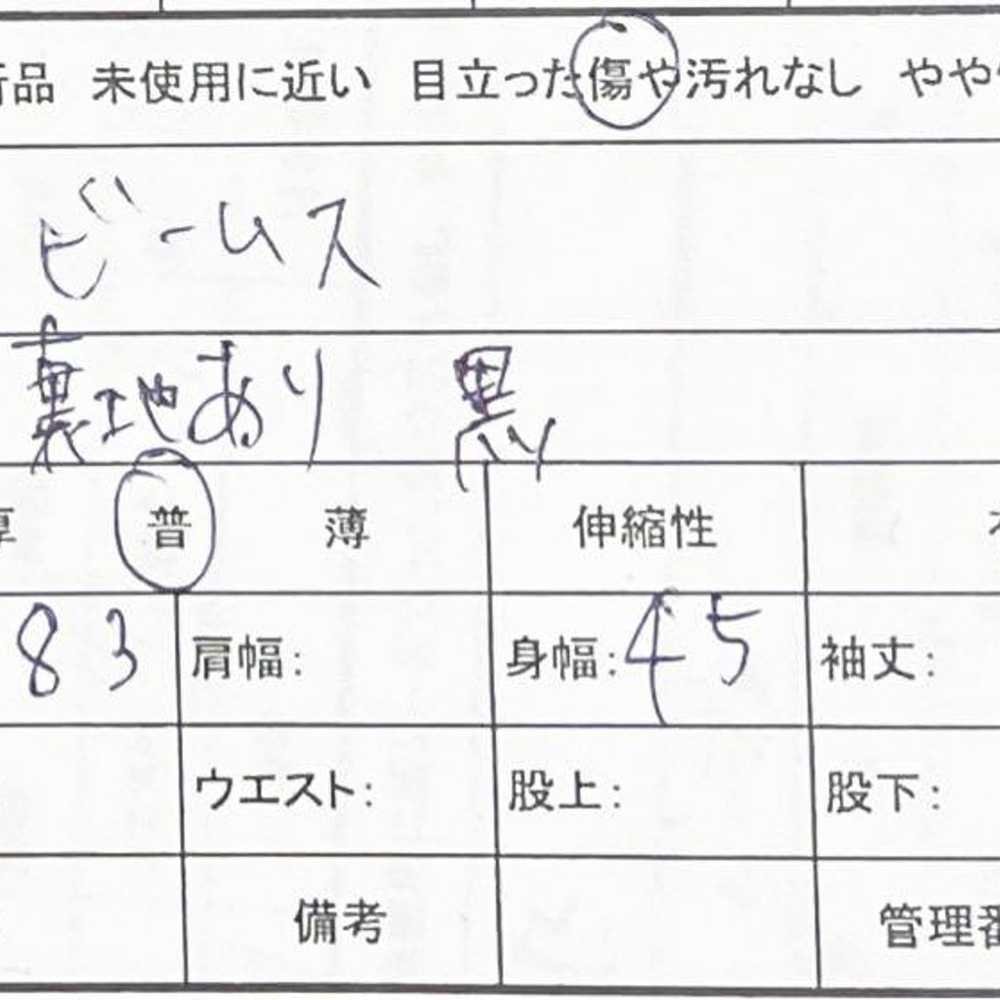 品 未使用に近い 目立った傷や汚れなし やや
ビームス
裏地あり 黒
普 薄 伸縮性
83 肩幅: 身幅:45 袖丈:
ウエスト: 股上: 股下:
備考 管理番